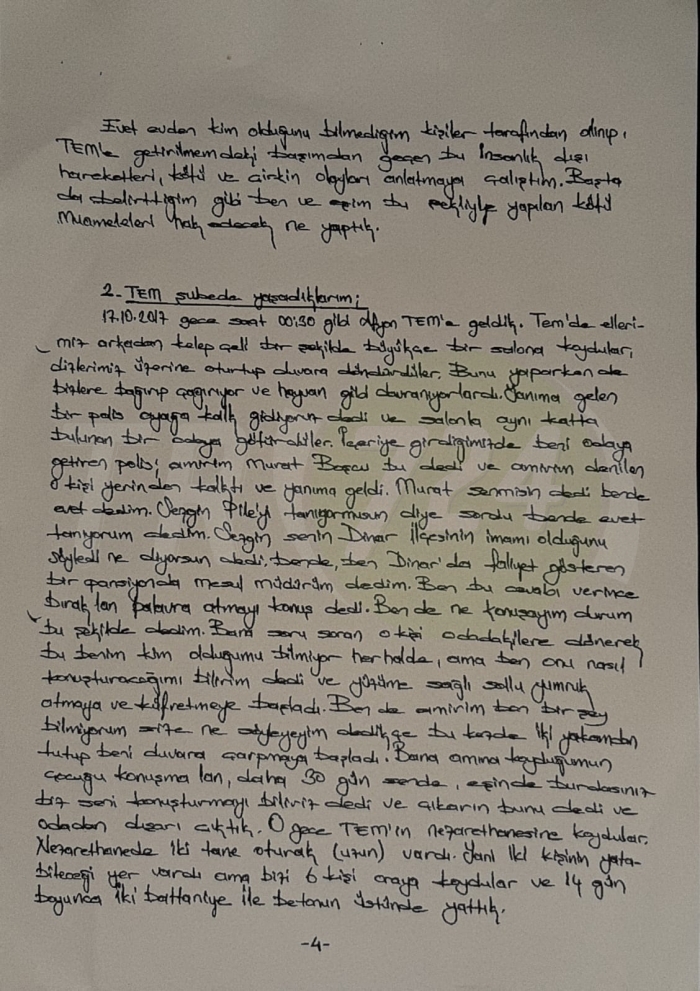 Evet evden kim olduğunu bilmediğim kişiler tarafından alınıp,
TEM'e getirilmemdeki başımdan geçen bu insanlık dışı
hareketleri, kötü ve çirkin olayları anlatmaya çalıştım. Başta
da belirttiğim gibi ben ve eşim bu şekliyle yapılan kötü
muameleleri hak edecek ne yaptık.
2- TEM şubede yaşadıklarım;
17.10.2017 gece saat 00:30 gibi Afyon TEM'e geldik. Tem'de elleri-
miz arkadan kelepçeli bir şekilde büyükçe bir salona koydular,
dizlerimiz üzerine oturtup duvara döndürdüler. Bunu yaparken de
bizlere bağırıp çağırıyor ve hayvan gibi davranıyorlardı. Yanıma gelen
bir polis ayağa kalk gidiyoruz dedi ve salonla aynı katta
bulunan bir odaya götürdüler. İçeriye girdiğimizde beni odaya
getiren polis; amirim Murat bu dedi ve amirim denilen
o kişi yerinden kalktı ve yanıma geldi. Murat senmisin dedi bende
evet dedim. Sezgin Pile'yi tanıyormusun diye sordu bende evet
tanıyorum dedim. Sezgin senin Dinar İlçesinin imamı olduğunu
söyledi ne diyorsun dedi, bende, ben Dinar'da faliyet gösteren
bir pansiyonda mesul müdürüm dedim. Ben bu cevabı verince
bırak lan palavra atmayı konuş dedi. Ben de ne konuşayım durum
bu şekilde dedim. Bana soru soran o kişi odadakilere dönerek
bu benim kim olduğumu bilmiyor herhalde, ama ben onu nasıl
konuşturacağımı bilirim dedi ve yüzüme sağlı sollu yumruk
atmaya ve küfretmeye başladı. Ben de amirim ben bir şey
bilmiyorum size ne söyleyeyim dedikçe bu kezde iki yakamdan
tutup beni duvara çarpmaya başladı. Bana amına koyduğumun
çocuğu konuşma lan, daha 30 gün sende, eşinde burdasınız
biz seni konuşturmayı biliriz dedi ve çıkarın bunu dedi ve
odadan dışarı çıktık. O gece TEM'in nezarethanesine koydular.
Nezarethanede iki tane oturak (uzun) vardı. Yani iki kişinin yata-
bileceği yer vardı ama bizi 6 kişi oraya koydular ve 14 gün
boyunca iki battaniye ile betonun üstünde yattık.
-4-